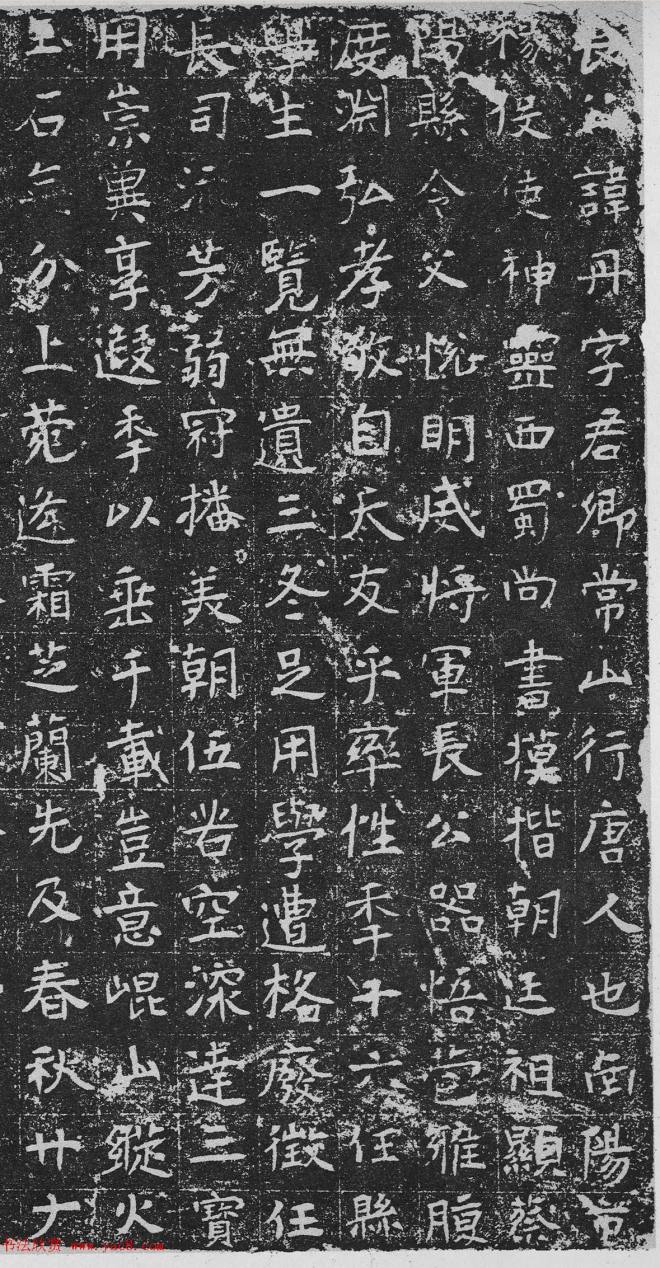 長諱丹字君卿常山行唐人也南陽
穆侯使神靈西蜀尚書摸揩朝廷祖顯蔡
陽縣令父悅明威將軍長公器悟苞雅腹
度淵弘孝敬自天友乎率性季十六任縣
學生一覽無遺三冬足用學遭格廢徵任
長司流芳弱冠播美朝伍岧空深達三寶
用崇冀享遐季以垂千載豈意崐山縱火
玉石无分上菀逄霜芝蘭先及春秋廿
书法欣赏 www.yac8.com